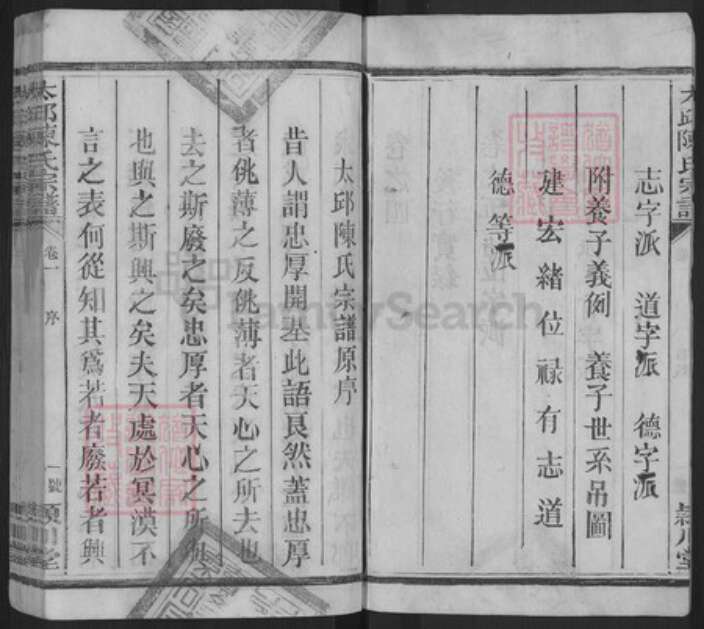 太邱陳氏宗譜
志字派 道字派 德字派
附養子義例 養子世系吊圖
建宏緒位祿有志道
德等派
太邱陳氏宗譜原序
昔人謂忠厚開基此語良然蓋忠厚
者佻薄之反佻薄者天心之所去也
去之斯廢之矣忠厚者天心之所與
也與之斯興之矣夫天處於冥漠不
言之表何從知其爲若者廢若者興
太邱陳氏宗譜
卷一
序
一號
潁川堂
FamilySearch